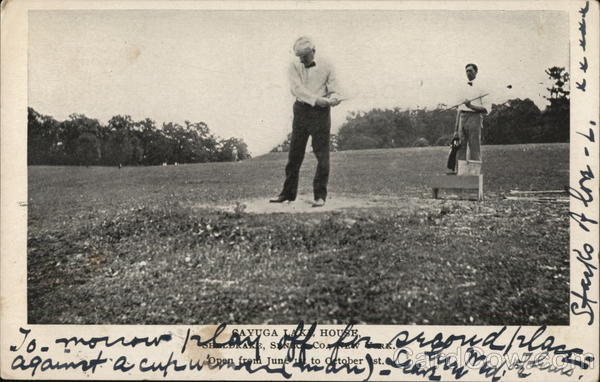 CAYUGA LAKE HOUSE,
SHELDRAKE, SENECA CO., NEW YORK.
Open from June 1st to October 1st.
To-morrow play off for second place
against a cup winner (man) -
Stacks of love - L. xxxxx
CardCow.com